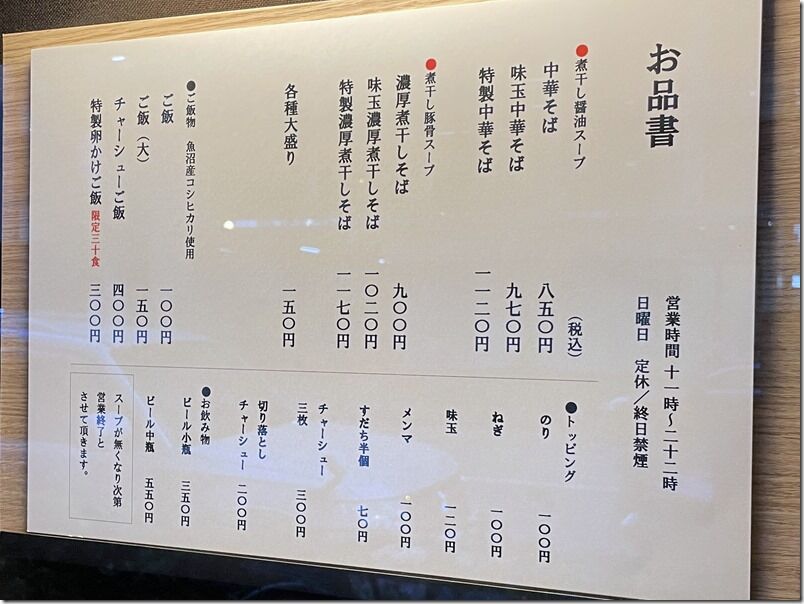 お品書
営業時間 十一時～二十二時
日曜日 定休／終日禁煙
●煮干し醤油スープ
(税込)
中華そば 八五〇円
味玉中華そば 九七〇円
特製中華そば 一一二〇円
●煮干し豚骨スープ
濃厚煮干しそば 九〇〇円
味玉濃厚煮干しそば 一〇二〇円
特製濃厚煮干しそば 一一七〇円
各種大盛り 一五〇円
●ご飯物 魚沼産コシヒカリ使用
ご飯 一〇〇円
ご飯(大) 一五〇円
チャーシューご飯 四〇〇円
特製卵かけご飯 限定三十食 三〇〇円
●トッピング
のり 一〇〇円
ねぎ 一〇〇円
味玉 一二〇円
メンマ 一〇〇円
すだち半個 七〇円
チャーシュー
三枚 三〇〇円
切り落とし
チャーシュー 二〇〇円
●お飲み物
ビール小瓶 三五〇円
ビール中瓶 五五〇円
スープが無くなり次第
営業終了と
させて頂きます。